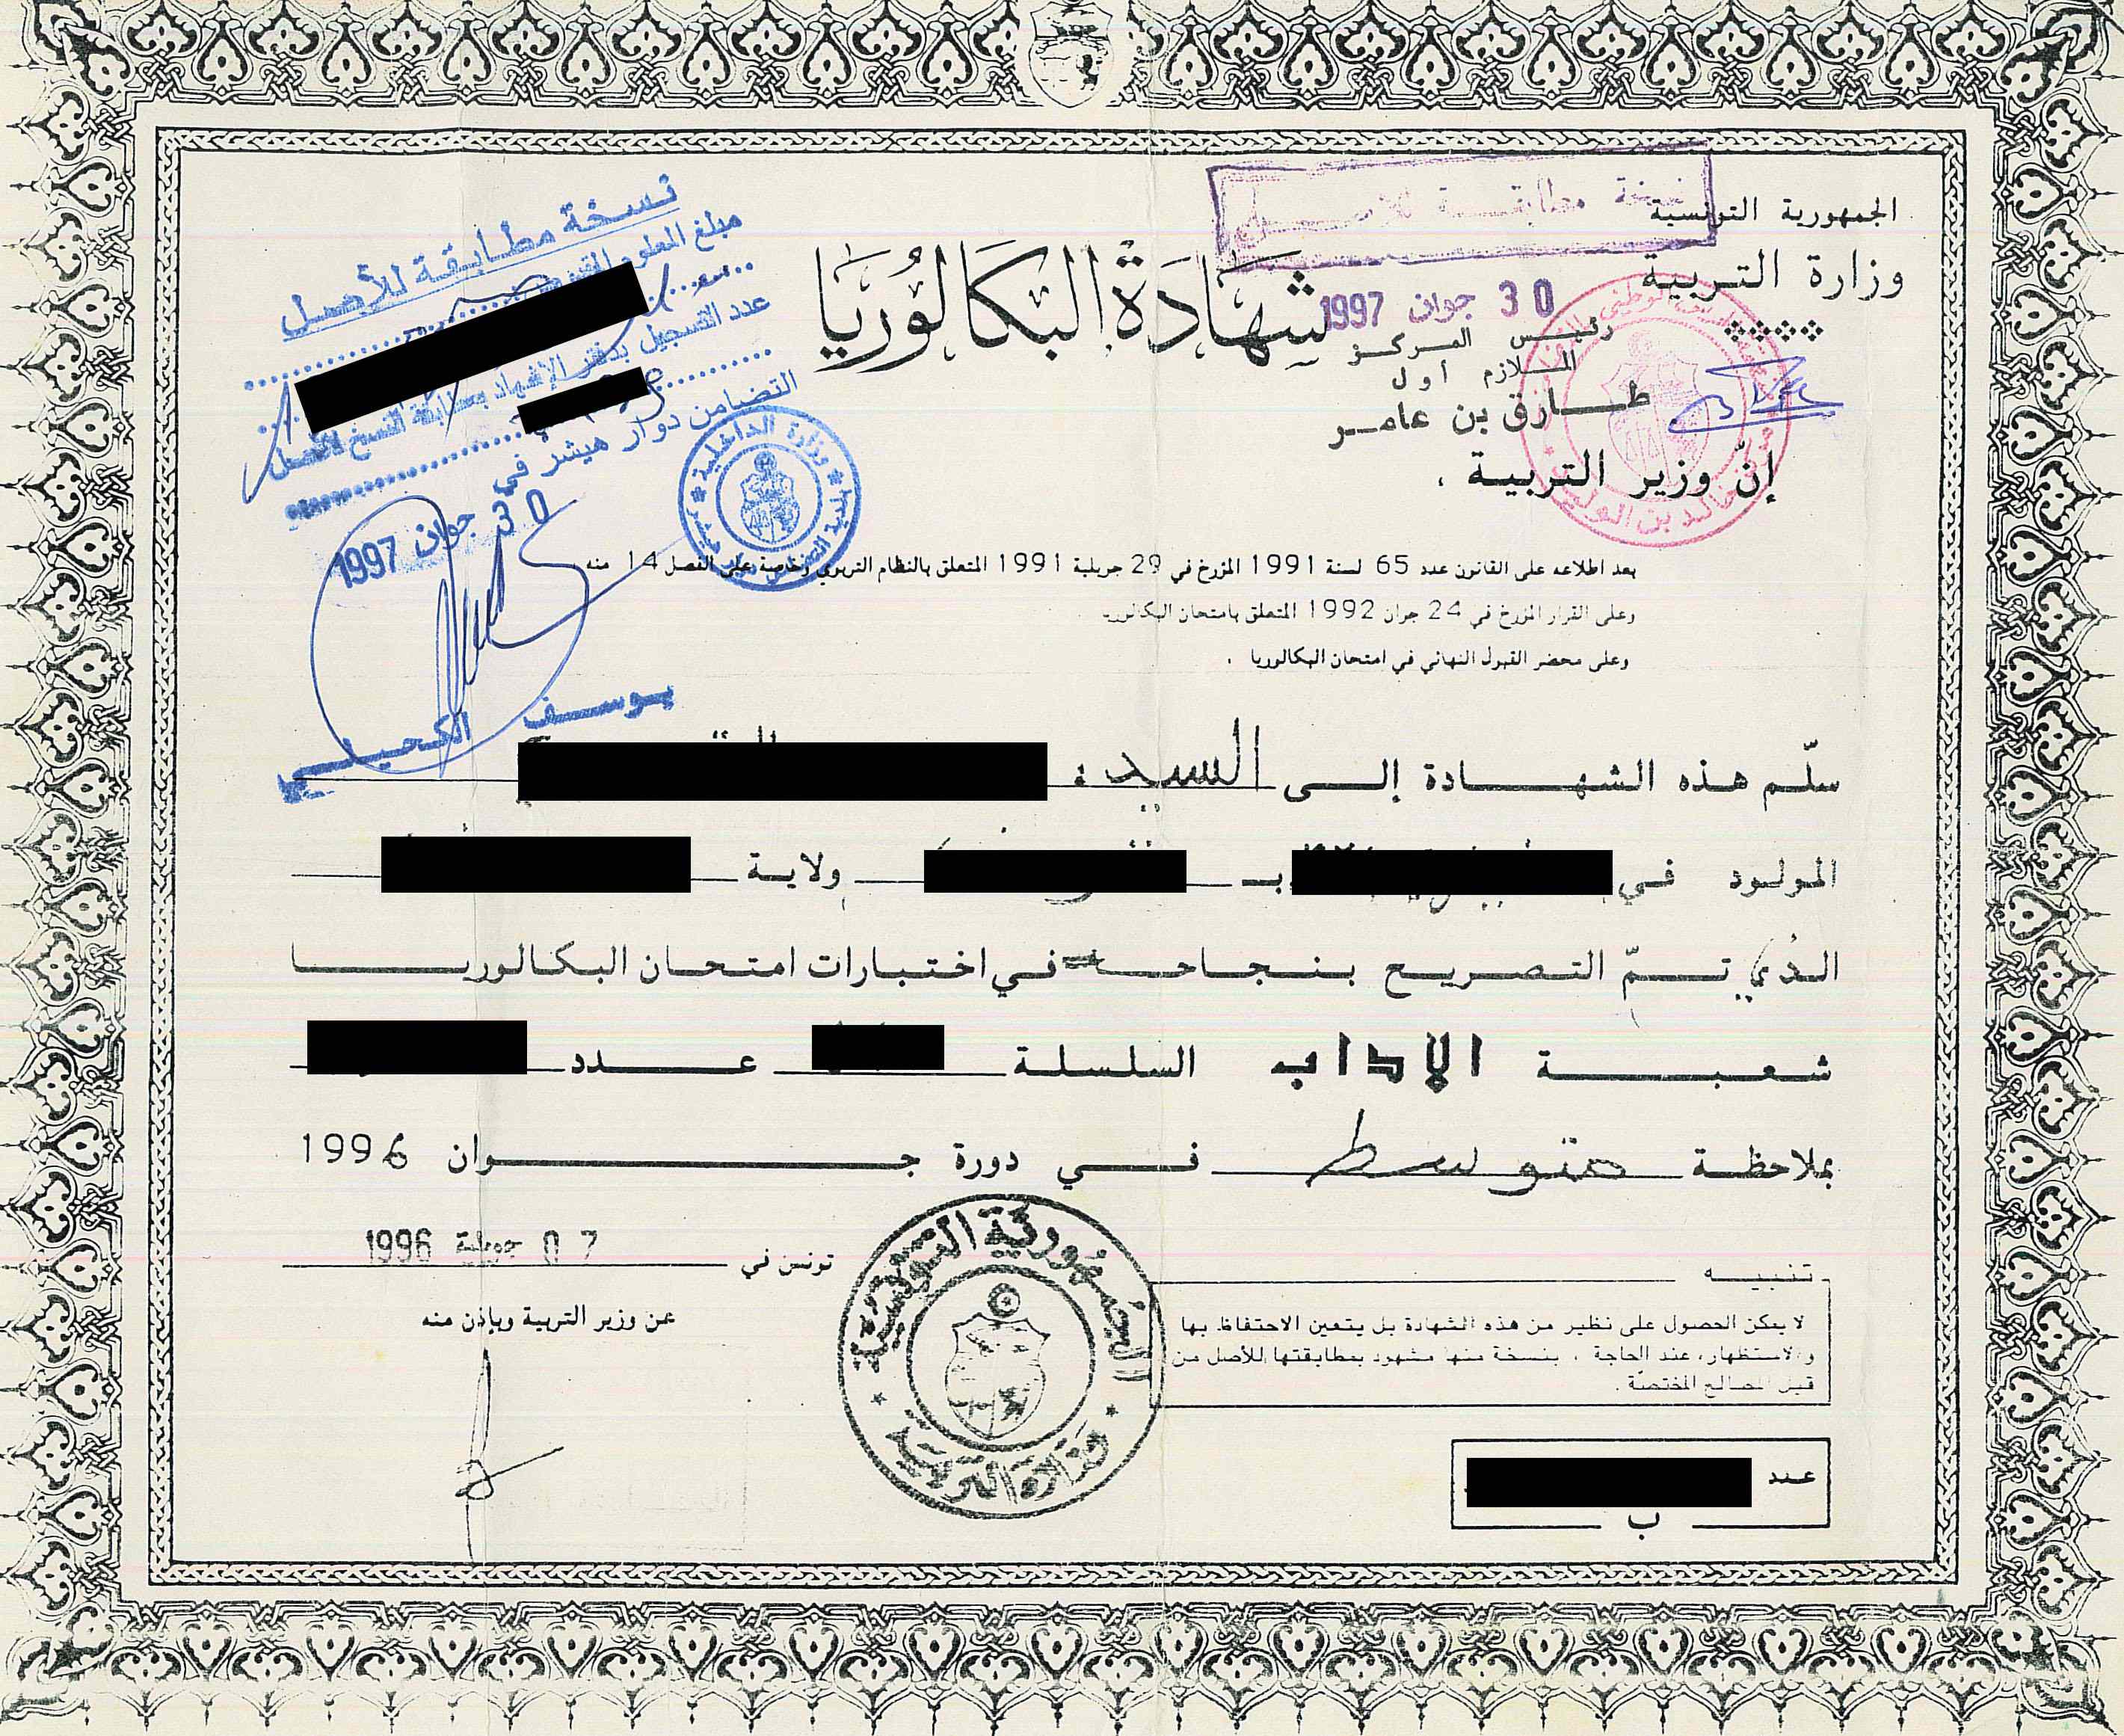 الجمهورية التونسية
وزارة التربية
نسخة مطابقة للأصل
30 جوان 1997
رئيس المركز
الملازم أول
طارق بن عامر
شهادة البكالوريا
نسخة مطابقة للأصل
مبلغ المعلوم
عدد التسجيل بدفتر الإشهاد بمطابقة النسخ للأصل
التضامن دوار هيشر في
30 جوان 1997
وزارة الداخلية
يوسف الكحيلي
إنّ وزير التربية .
بعد اطلاعه على القانون عدد 65 لسنة 1991 المؤرخ في 29 جويلية 1991 المتعلق بالنظام التربوي وخاصة على الفصل 14 منه
وعلى القرار المؤرخ في 24 جوان 1992 المتعلق بامتحان البكالوريا
وعلى محضر القبول النهائي في امتحان البكالوريا .
سلّم هذه الشهادة إلى السيد :
المولود في بـ ولاية
الذي تمّ التصريح بنجاحه في اختبارات امتحان البكالوريا
شعبة الاداب السلسلة عدد
بملاحظة متوسط في دورة جوان 1996
تونس في 07 جويلية 1996
عن وزير التربية وبإذن منه
الجمهورية التونسية
وزارة التربية
تنبيه
لا يمكن الحصول على نظير من هذه الشهادة بل يتعين الاحتفاظ بها
والاستظهار، عند الحاجة ، بنسخة منها مشهود بمطابقتها للأصل من
قبل المصالح المختصّة .
عدد
ب